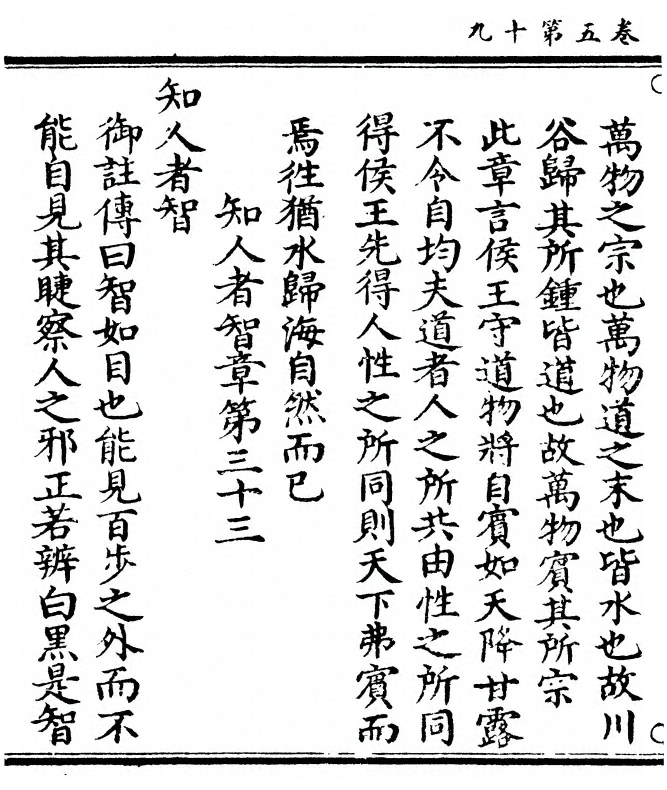 卷五第十九
萬物之宗也萬物道之末也皆水也故川
谷歸其所鍾皆道也故萬物賓其所宗
此章言侯王守道物將自賓如天降甘露
不令自均夫道者人之所共由性之所同
得侯王先得人性之所同則天下弗賓而
焉徃猶水歸海自然而已
知人者智章第三十三
知人者智
御註傳曰智如目也能見百步之外而不
能自見其睫察人之邪正若辨白黒是智